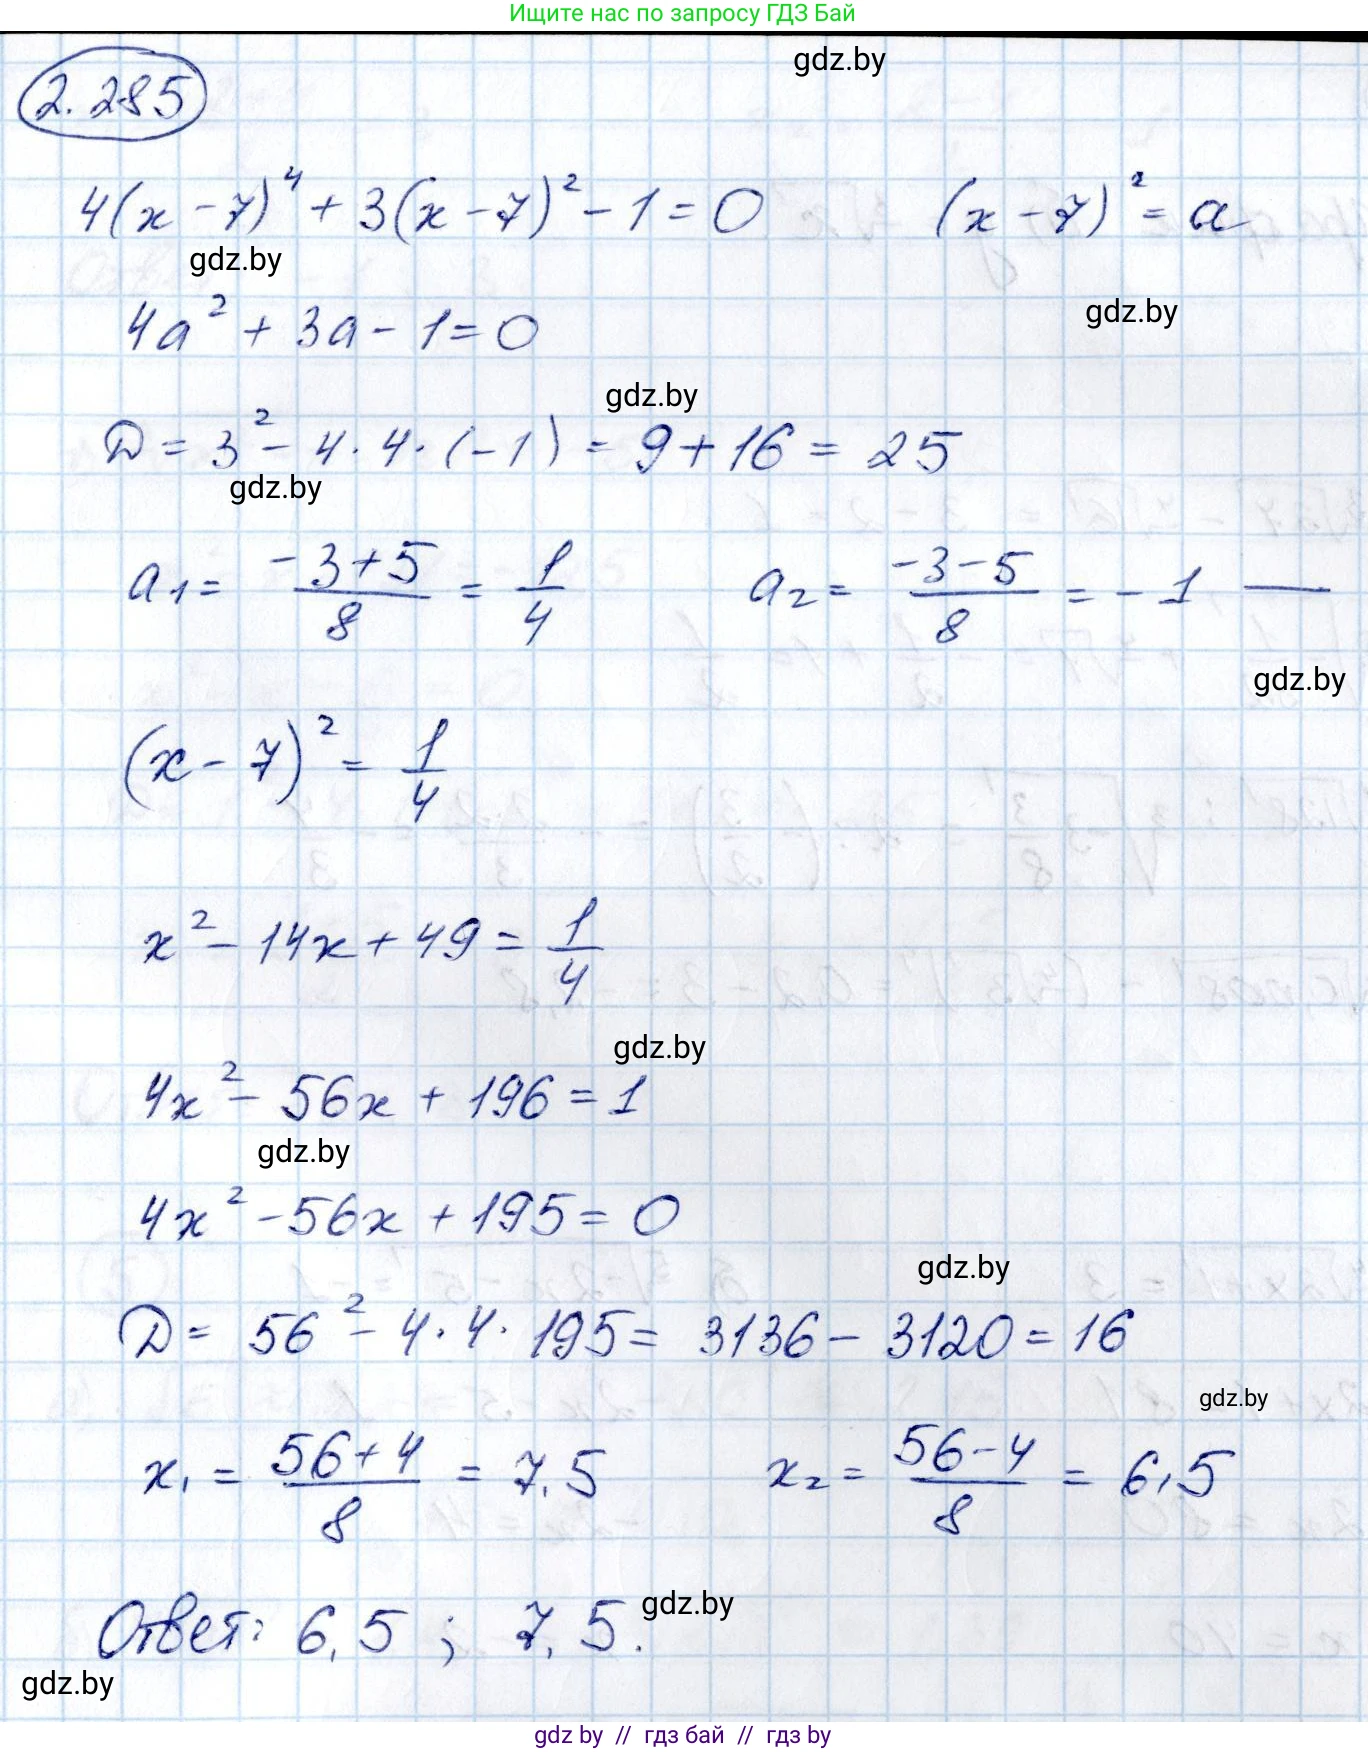 Ищите нас по запросу ГДЗ Бай
gdz.by
2.285
4(x-7)⁴+3(x-7)²-1=0 (x-7)²=a
gdz.by
gdz.by
4a²+3a-1=0
gdz.by
D=3²-4·4·(-1)=9+16=25
gdz.by
a₁=(-3+5)/8=1/4 a₂=(-3-5)/8=-1 —
gdz.by
(x-7)²=1/4
x²-14x+49=1/4
gdz.by
4x²-56x+196=1
gdz.by
4x²-56x+195=0
gdz.by
D=56²-4·4·195=3136-3120=16
gdz.by
x₁=(56+4)/8=7,5 x₂=(56-4)/8=6,5
gdz.by
Ответ: 6,5; 7,5.
gdz.by
gdz by // гдз бай // гдз by